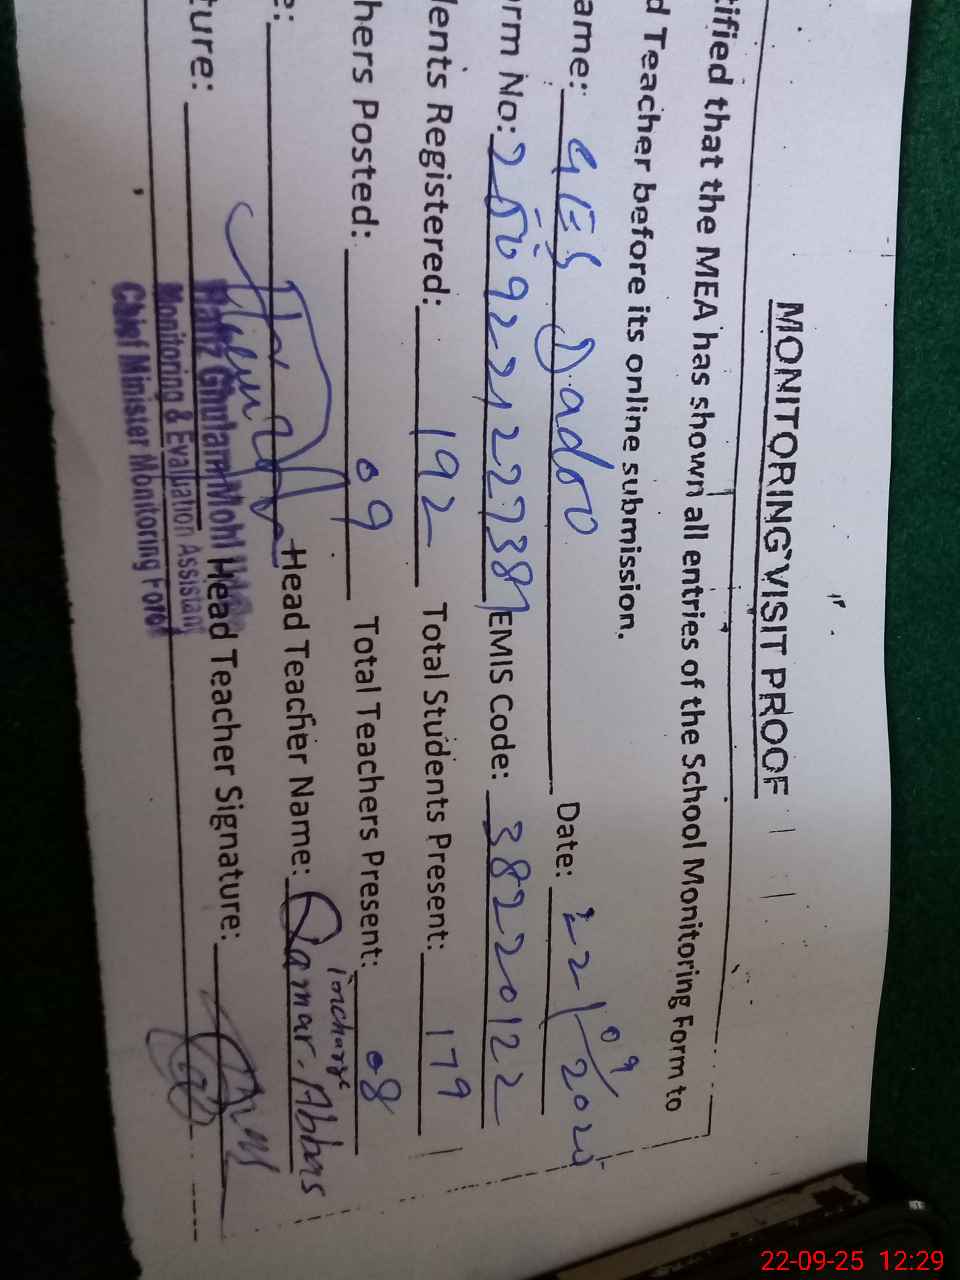 MONITORING VISIT PROOF
tified that the MEA has shown all entries of the School Monitoring Form to
d Teacher before its online submission.
ame: GES Dadoo Date: 22/09/202
orm No: EMIS Code: 38222012 2
lents Registered: 192 Total Students Present: 179
hers Posted: 09 Total Teachers Present: 08
e: Head Teacher Name: Qamar. Abbas incharge
ture: Head Teacher Signature:
Hafiz Ghulam Mohi
Monitoring & Evaluation Assistant
Chief Minister Monitoring Force
22-09-25 12:29